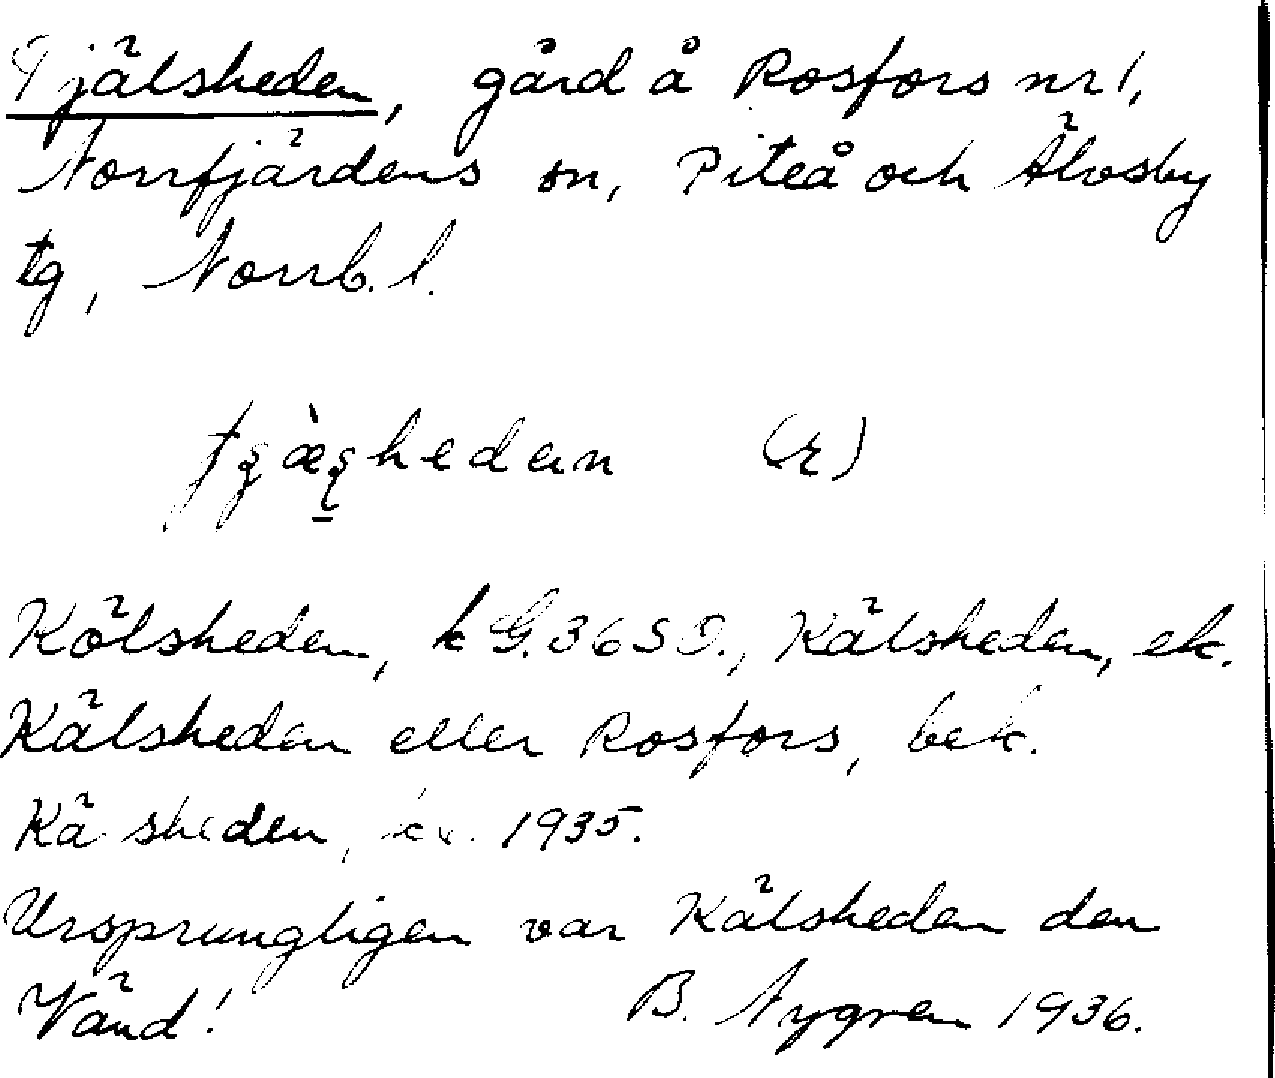 Tjälsheden, gård å Rosfors nr 1,
Norrfjärdens sn, Piteå och Älvsby
tg, Norrb. l.
(r)
Kölsheden, k G. 36 S O., Kälsheden, ek.
Kälsheden eller Rosfors, bek.
Kä sheden, 1935.
Ursprungligen var Kälsheden den
Vänd! B. Nygren 1936.